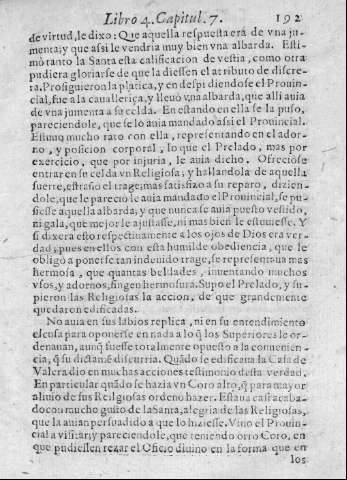 Libro 4. Capitul. 7. 192
de virtud, le dixo: Que aquella respuesta era de vna ju-
menta; y que assi le vendria muy bien vna albarda. Esti-
mò tanto la Santa esta calificacion de vestia, como otra
pudiera gloriarse de que la diessen el atributo de discre-
ta. Prosiguieron la platica, y en despidiendose el Prouin-
cial, fue a la caualleriça, y lleuò vna albarda, que alli auia
de vna jumenta a su celda. En estando en ella se la puso,
pareciendole, que se lo auia mandado assi el Prouincial.
Estuuo mucho rato con ella, representando en el ador-
no, y posicion corporal, lo que el Prelado, mas por
exercicio, que por injuria, le auia dicho. Ofreciòse
entrar en su celda vna Religiosa; y hallandola de aquella
suerte, estrañò el trage; mas satisfizo a su reparo, dizien-
dole, que le pareciò le auia mandado el Prouincial, se pu-
siesse aquella albarda; y que nunca se auia puesto vestido,
ni gala, que mejor le ajustasse, ni mas bien le estuuiesse. Y
si dixera esto respectiuamente a los ojos de Dios era ver-
dad, pues en ellos con esta humilde obediencia, que le
obligò a ponerse tan indevido trage, se representaua mas
hermosa, que quantas beldades, inuentando muchos
vsos, y adornos, fingen hermosura. Supo el Prelado, y su-
pieron las Religiosas la accion, de que grandemente
quedaron edificadas.
No auia en sus labios replica, ni en su entendimiento
escusa para oponerse en nada a lo q̃ los Superiores le or-
denauan, aunq̃ fuesse totalmente opuesto a la conuenien-
cia, q̃ su dictamẽ discurria. Quãdo se edificaua la Casa de
Valera dio en muchas acciones testimonio desta verdad.
En particular quãdo se hazia vn Coro alto, q̃ para mayor
aliuio de sus Religiosas ordenò hazer. Estaua casi acaba-
do con mucho gusto de la Santa, alegria de las Religiosas,
que la auian persuadido a que lo hiziesse. Vino el Prouin-
cial a visitar; y pareciendole, que teniendo otro Coro, en
que pudiessen rezar el Oficio diuino en la forma que en
los